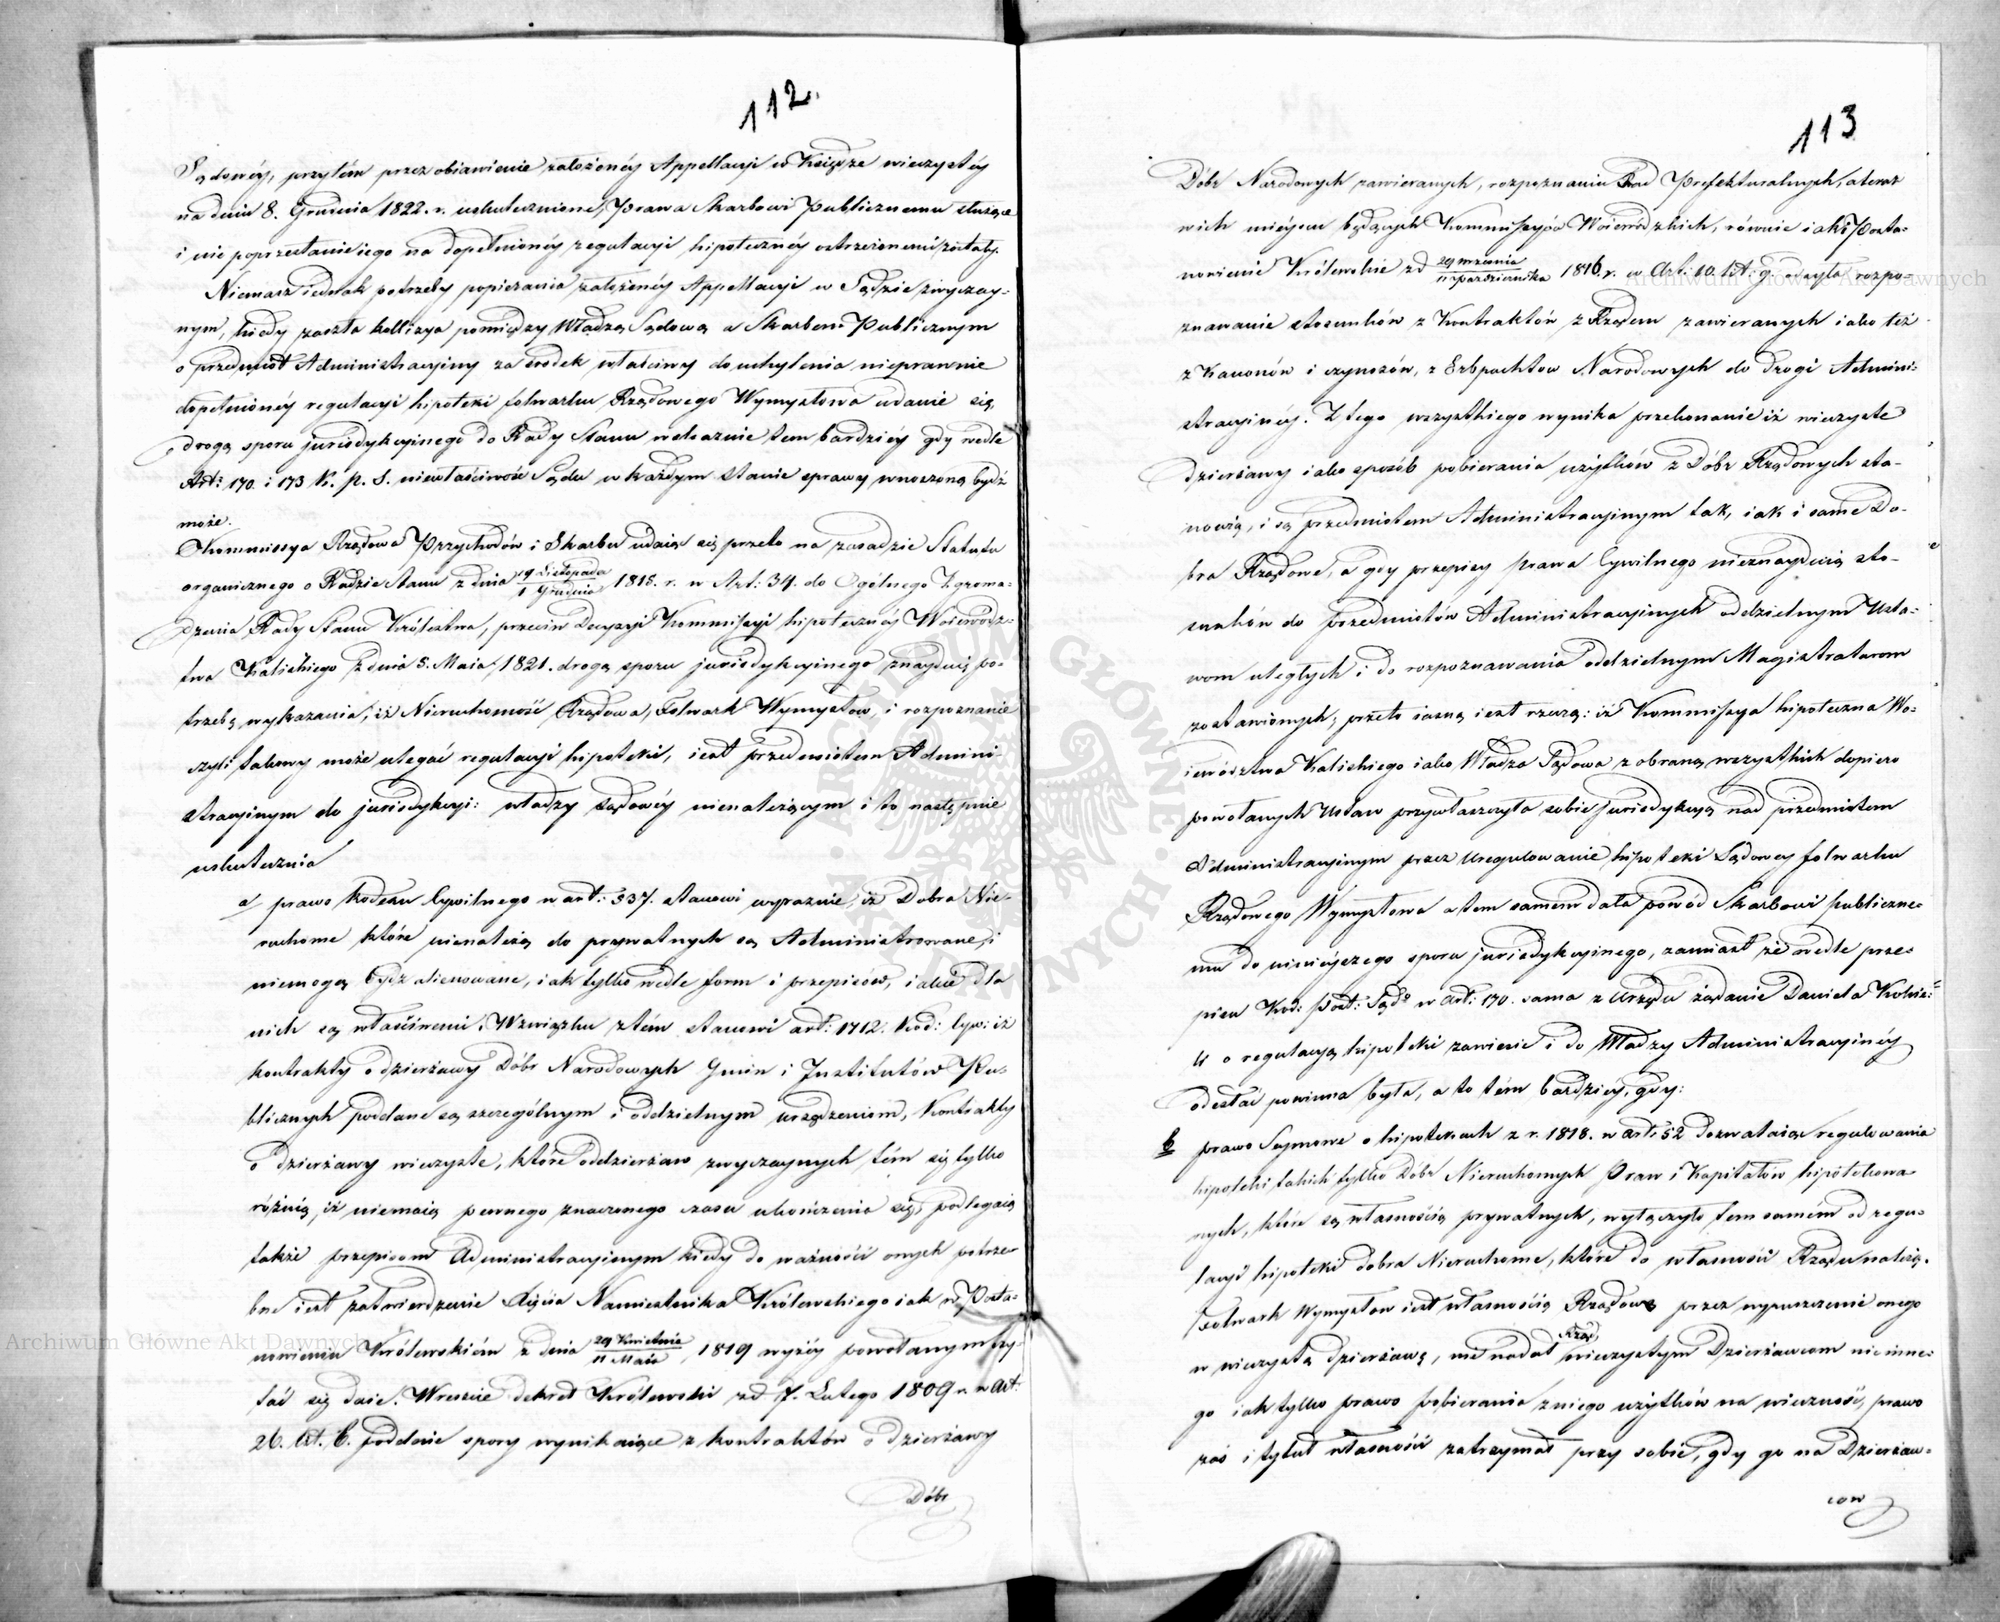 112.
Sądowéy, przytém przez obiawienie założonéy Appellacyi w Księdze wieczystéy
na dniu 8. Grudnia 1822. r. uskutecznione, Prawa Skarbowi Publicznemu służące
i nie poprzestanie iego na dopełnionéy regulacyi hipotecznéy ostrzeżonemi zostały.
Niemasz iednak potrzeby popierania założonéy Appellacyi w Sądzie zwyczay-
nym, kiedy zaszła kollizya pomiędzy Władzą Sądową a Skarbem Publicznym
o przedmiot Administracyiny za środek właściwy do uchylenia nieprawnie
dopełnionéy regulacyi hipoteki folwarku Rządowego Wymysłowa udanie się
drogą sporu jurisdykcyinego do Rady Stanu wskazuie tem bardziéy gdy wedle
Art: 170. i 173 K. p. S. niewłaściwość Sądu w każdym stanie sprawy wnoszoną bydź
może.
Kommissya Rządowa Przychodów i Skarbu udaiąc się przeto na zasadzie Statutu
organicznego o Radzie Stanu z dnia 19 Listopada / 1 Grudnia 1815. r. w Art: 34. do Ogólnego Zgroma-
dzenia Rady Stanu Królestwa, przeciw Decyzyi Kommissyi hipotecznéy Woiewódz-
twa Kaliskiego z dnia 5. Maia 1821. drogą sporu jurisdykcyinego znayduie po-
trzebę wykazania, iż Nieruchomość Rządowa, Folwark Wymysłow, i rozpoznanie
czyli takowy może ulegać regulacyi hipoteki, iest przedmiotem Admini-
stracyinym do jurisdykcyi: władzy sądowéy nienależącym i to następnie
uskutecznia
a prawo Kodexu Cywilnego w art: 537. stanowi wyraźnie, iż Dobra Nie-
ruchome które nienależą do prywatnych są Administrowane, i
niemogą bydź alienowane, iak tylko wedle form i przepisów, iakie dla
nich są właściwemi. W związku z tém stanowi art: 1712. Kod: Cyw: iż
kontrakty o dzierżawy Dóbr Narodowych Gmin i Institutów Pu-
blicznych poddane są szczególnym i oddzielnym urządzeniom, Kontrakty
o dzierżawy wieczyste, które od dzierżaw zwyczaynych tém się tylko
różnią, iż niemaią pewnego znaczonego czasu ukończenia się, podlegaią
także przepisom Administracyinym kiedy do ważności onych potrze-
bne iest zatwierdzenie Xięcia Namiestnika Królewskiego iak w Posta-
nowieniu Królewskiém z dnia 29 Kwietnia / 11 Maia 1819 wyżéy powołanym czy-
tać się daie. Wreszcie dekret Królewski zd. 7. Lutego 1809 r. w Art:
26. lit. C. poddaie spory wynikaiące z kontraktów o dzierżawy
Dóbr
113
Dóbr Narodowych zawieranych, rozpoznaniu Rad Prefekturalnych, a teraz
w ich mieyscu będących Kommissyów Woiewódzkich, równie iak i Posta-
nowienie Królewskie zd 29 września / 11 października 1816. r. w Art: 10. lit: g. odsyła rozpo-
znawanie stosunków z Kontraktów z Rządem zawieranych iako też
z Kanonów i czynszów, z Erbpachtow Narodowych do drogi Admini-
stracyinéy. Z tego wszystkiego wynika przekonanie iż wieczyste
dzierżawy iako sposób pobierania użytków z Dóbr Rządowych sta-
nowią, i są przedmiotem Administracyinym tak, iak i same Do-
bra Rządowe, a gdy przepisy prawa Cywilnego nieznayduią sto-
sunków do przedmiotów Administracyinych oddzielnym Usta-
wom uległych i do rozpoznawania oddzielnym Magistraturom
zostawionych; przeto iasną iest rzeczą: iż Kommissya hipoteczna Wo-
iewództwa Kaliskiego iako Władza Sądowa z obrazą wszystkich dopiero
powołanych Ustaw przywłaszczyła sobie jurisdykcyą nad przedmiotem
Administracyinym przez uregulowanie hipoteki Sądowey folwarku
Rządowego Wymysłowa a tem samem dała powód Skarbowi publiczne-
mu do ninieyszego sporu jurisdykcyinego, zamiast że wedle prze-
pisu Kod: Post: Sąd: w art: 170. sama z Urzędu żądanie Daniela
o regulacyą hipoteki zawiesić i do Władzy Administracyinéy
odesłać powinna była, a to tém bardziéy, gdy:
b prawo Seymowe o hipotekach z r. 1818. w art: 52 dozwalaiąc regulowania
hipoteki takich tylko Dóbr Nieruchomych Praw i Kapitałów hipotekowa-
nych, które są własnością prywatnych, wyłączyło tem samém od regu-
lacyi hipoteki dobra Nieruchome, które do własności Rządu należą.
Folwark Wymysłow iest własnością Rządową przez wypuszczenie onego
w wieczystą dzierżawę, nie nadał Rząd wieczystym Dzierżawcom nic inne-
go iak tylko prawo pobierania z niego użytków na wieczność, prawo
zaś i tytuł własności zatrzymał przy sobie, gdy go na Dzierżaw-
cow
Archiwum Główne Akt Dawnych
Archiwum Główne Akt Dawnych